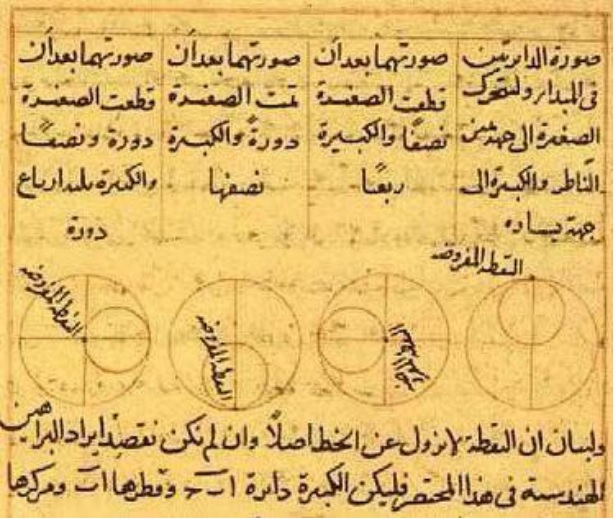 صورة الدايرتين
فى المبدأ ولتتحرك
الصغيرة الى جهة يمين
الناظر والكبيرة الى
جهة يساره
صورتهما بعد أن
قطعت الصغيرة
نصفًا والكبيرة
ربعًا
صورتهما بعد أن
تمت الصغيرة
دورةً والكبيرة
نصفها
صورتهما بعد أن
قطعت الصغيرة
دورة ونصفًا
والكبيرة ثلثة ارباع
دورة
النقطة المفروضة
النقطة المفروضة
النقطة المفروضة
ولبيان ان النقطة لا تزول عن الخط اصلًا وان لم نكن نقصد ايراد البراهين
الهندسية فى هذا المختصر فليكن الكبيرة دائرة ا ب ج وقطرها ا ب ومركزها